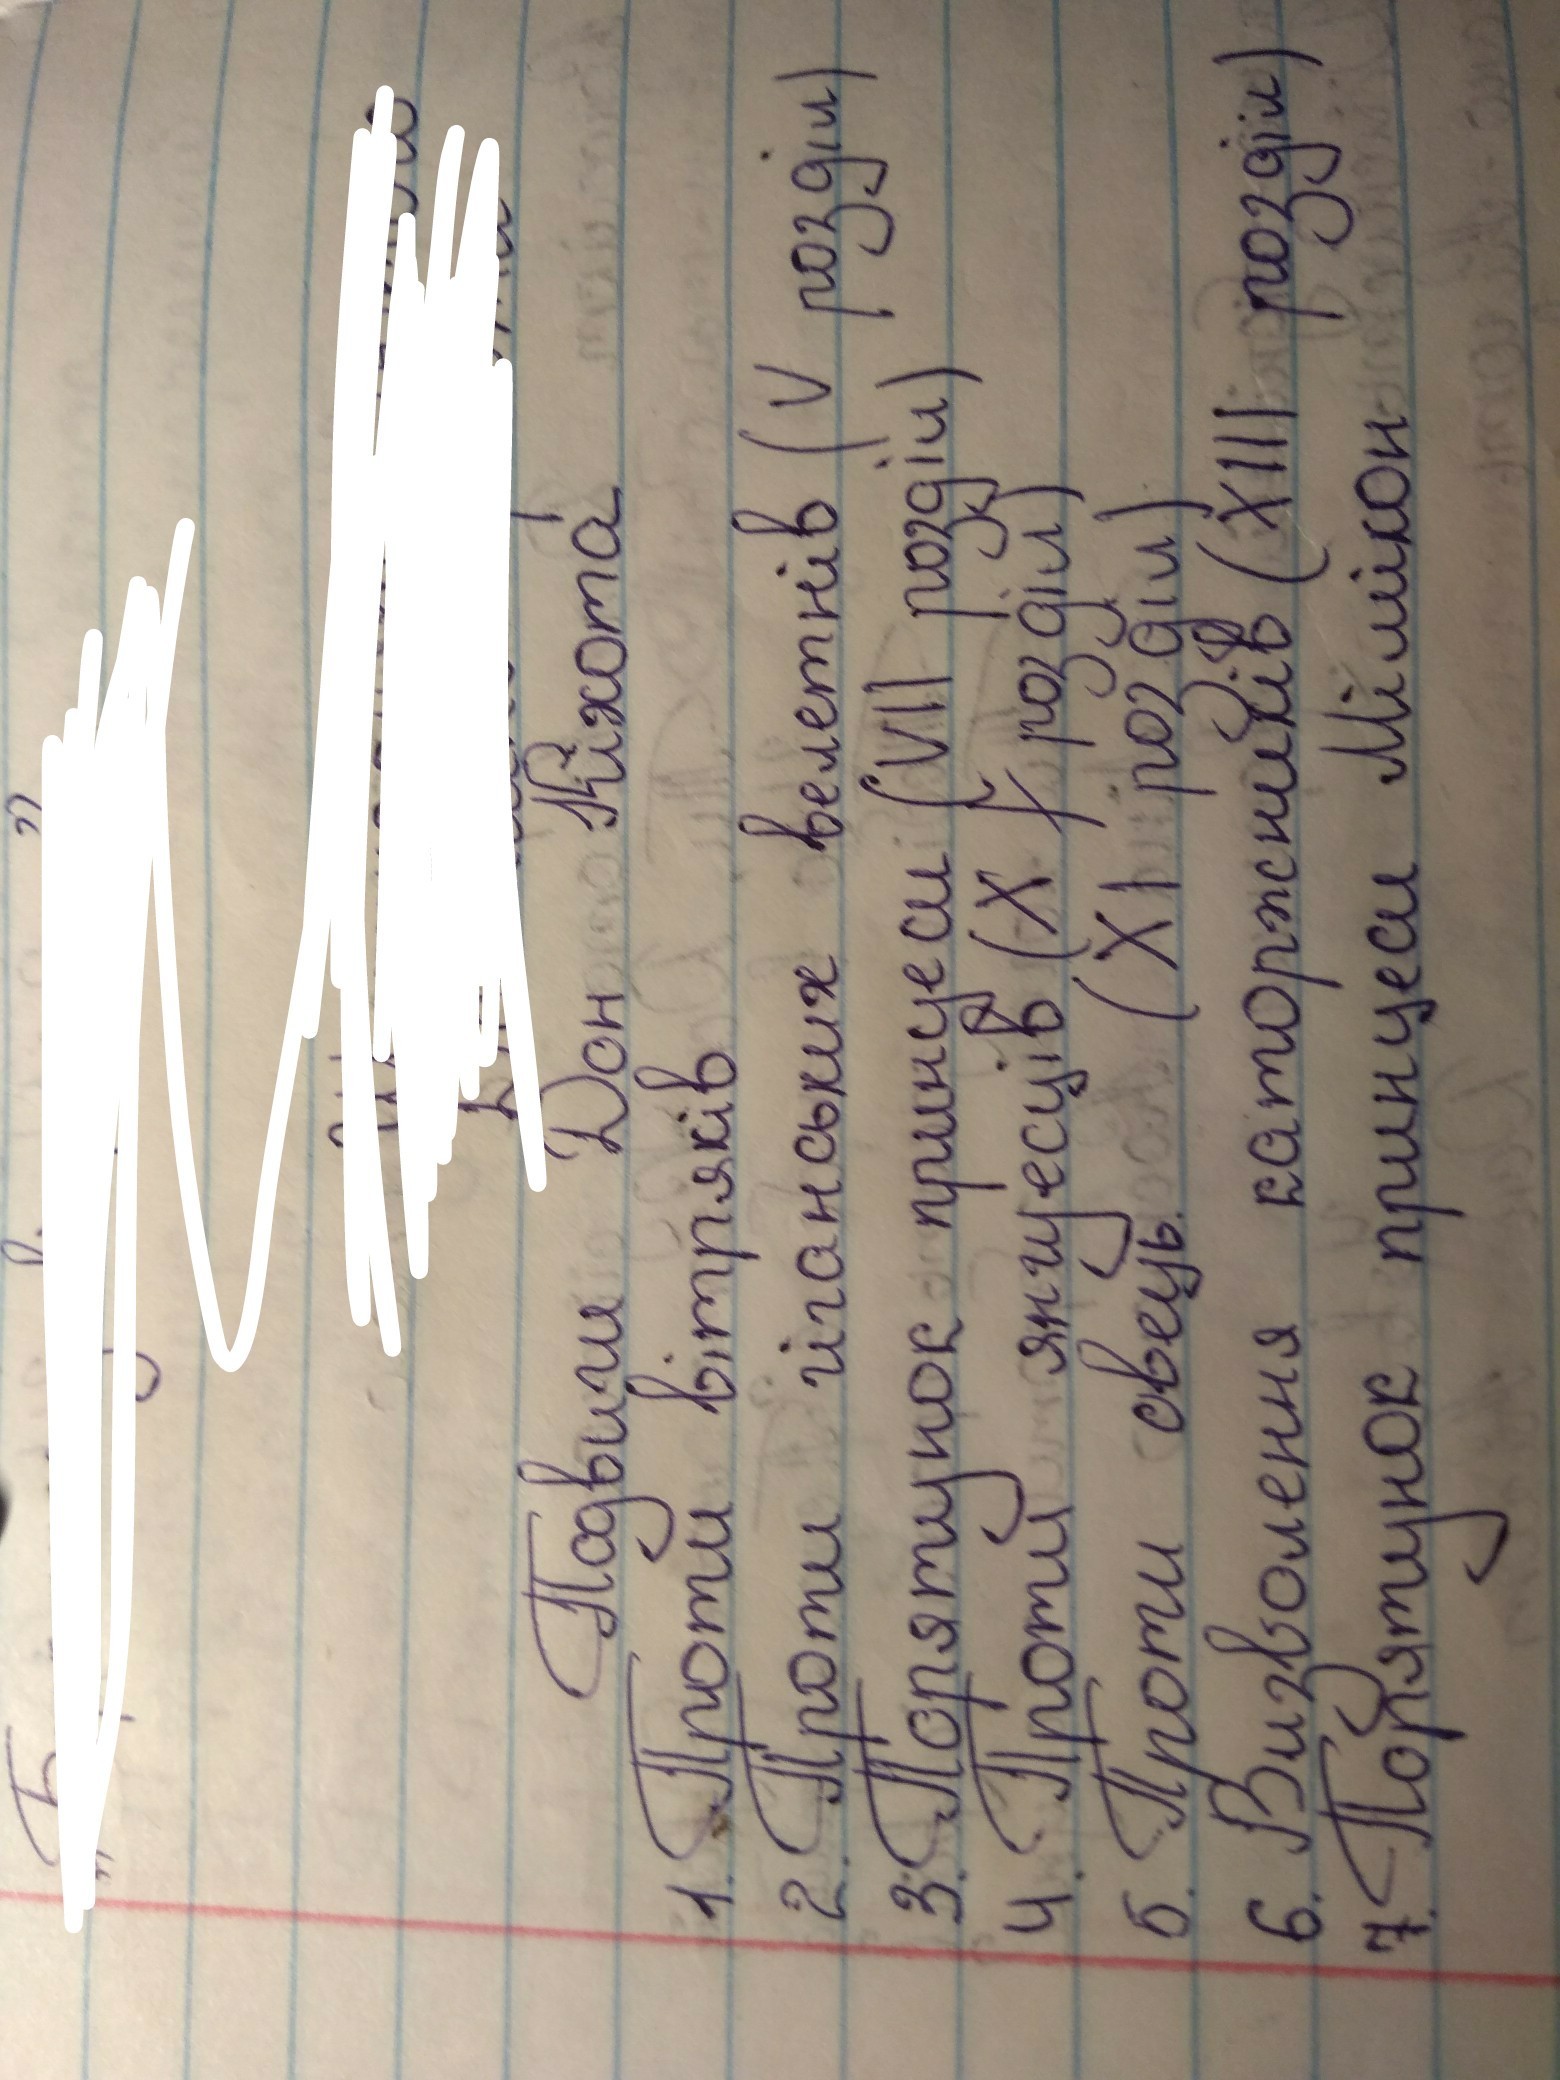 Подвиги Дон Кіхота
1. Проти вітряків
2. Проти гіганських велетнів (V розділ)
3. Порятунок принцеси (VIII розділ)
4. Проти янгуесців (X розділ)
5. Проти овець. (XI розділ)
6. Визволення каторжників (XIII розділ)
7. Порятунок принцеси Мілікон